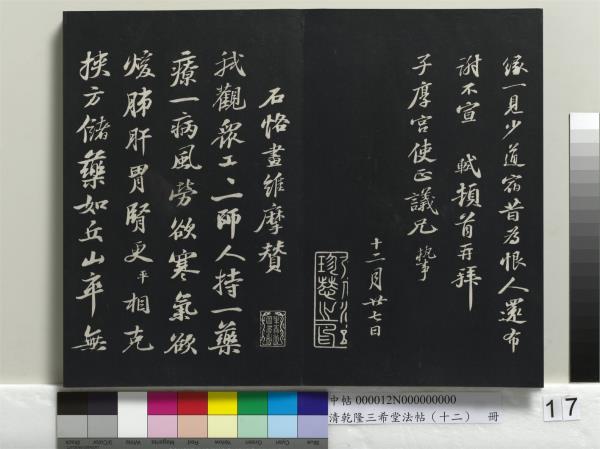 緣一見少道宿昔為恨人還布
謝不宣 軾頓首再拜
子厚宮使正議兄執事
十二月廿七日
石恪畫維摩贊
我觀眾工工一師人持一藥
療一病風勞欲寒氣欲
煖肺肝胃腎更平相克
挾方儲藥如丘山卒無
申帖 000012N000000000
清乾隆三希堂法帖（十二） 冊
17
Blue
Cyan
Green
Yellow
Red
Magenta
White
3/Color
Black